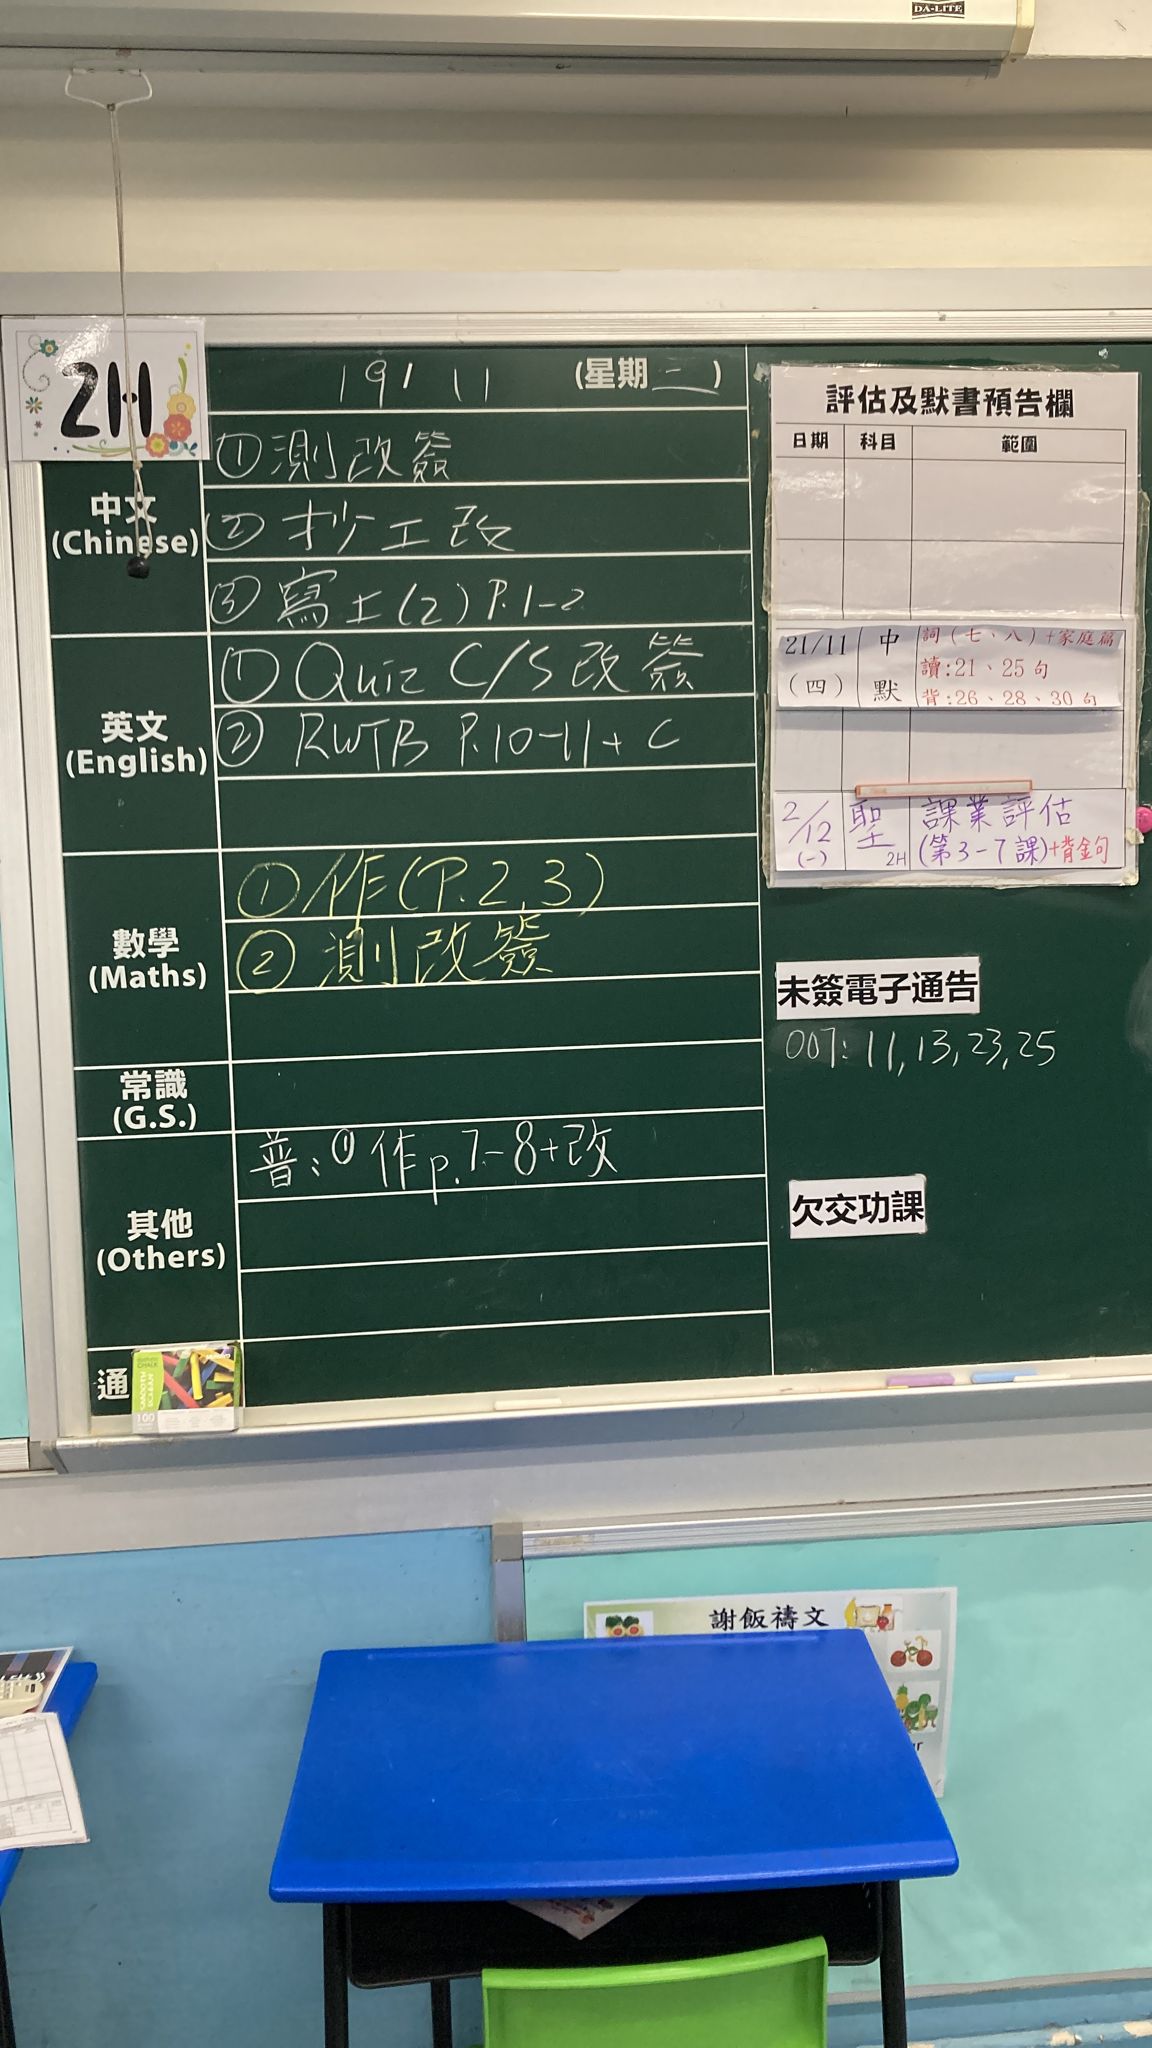 DA-LITE
2H
19/11 (星期二)
中文
(Chinese)
①測改簽
②抄工改
③寫工(2) P.1-2
英文
(English)
①Quiz C/S改簽
② RWTB P.10-11+C
數學
(Maths)
①作(P.2,3)
② 測改簽
常識
(G.S.)
其他
(Others)
普:①作p.7-8+改
通
100
評估及默書預告欄
日期 科目 範圍
21/11 中 詞(七、八)+家庭篇
(四) 默 讀:21、25句
背:26、28、30句
2/12 聖 課業評估
(一) 2H (第3-7課)+背金句
未簽電子通告
007: 11,13,23,25
欠交功課
謝飯禱文